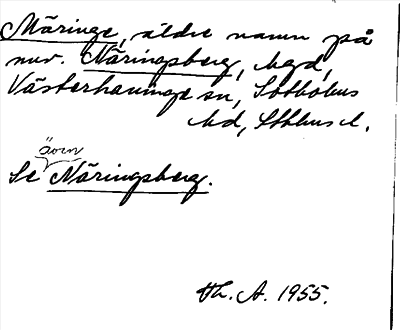 Märinge, äldre namn på
nuv. Näringsberg, hgd,
Västerhaninge sn, Sotholms
hd, Sthlms l.
även
Se Näringsberg.
Th. A. 1955.